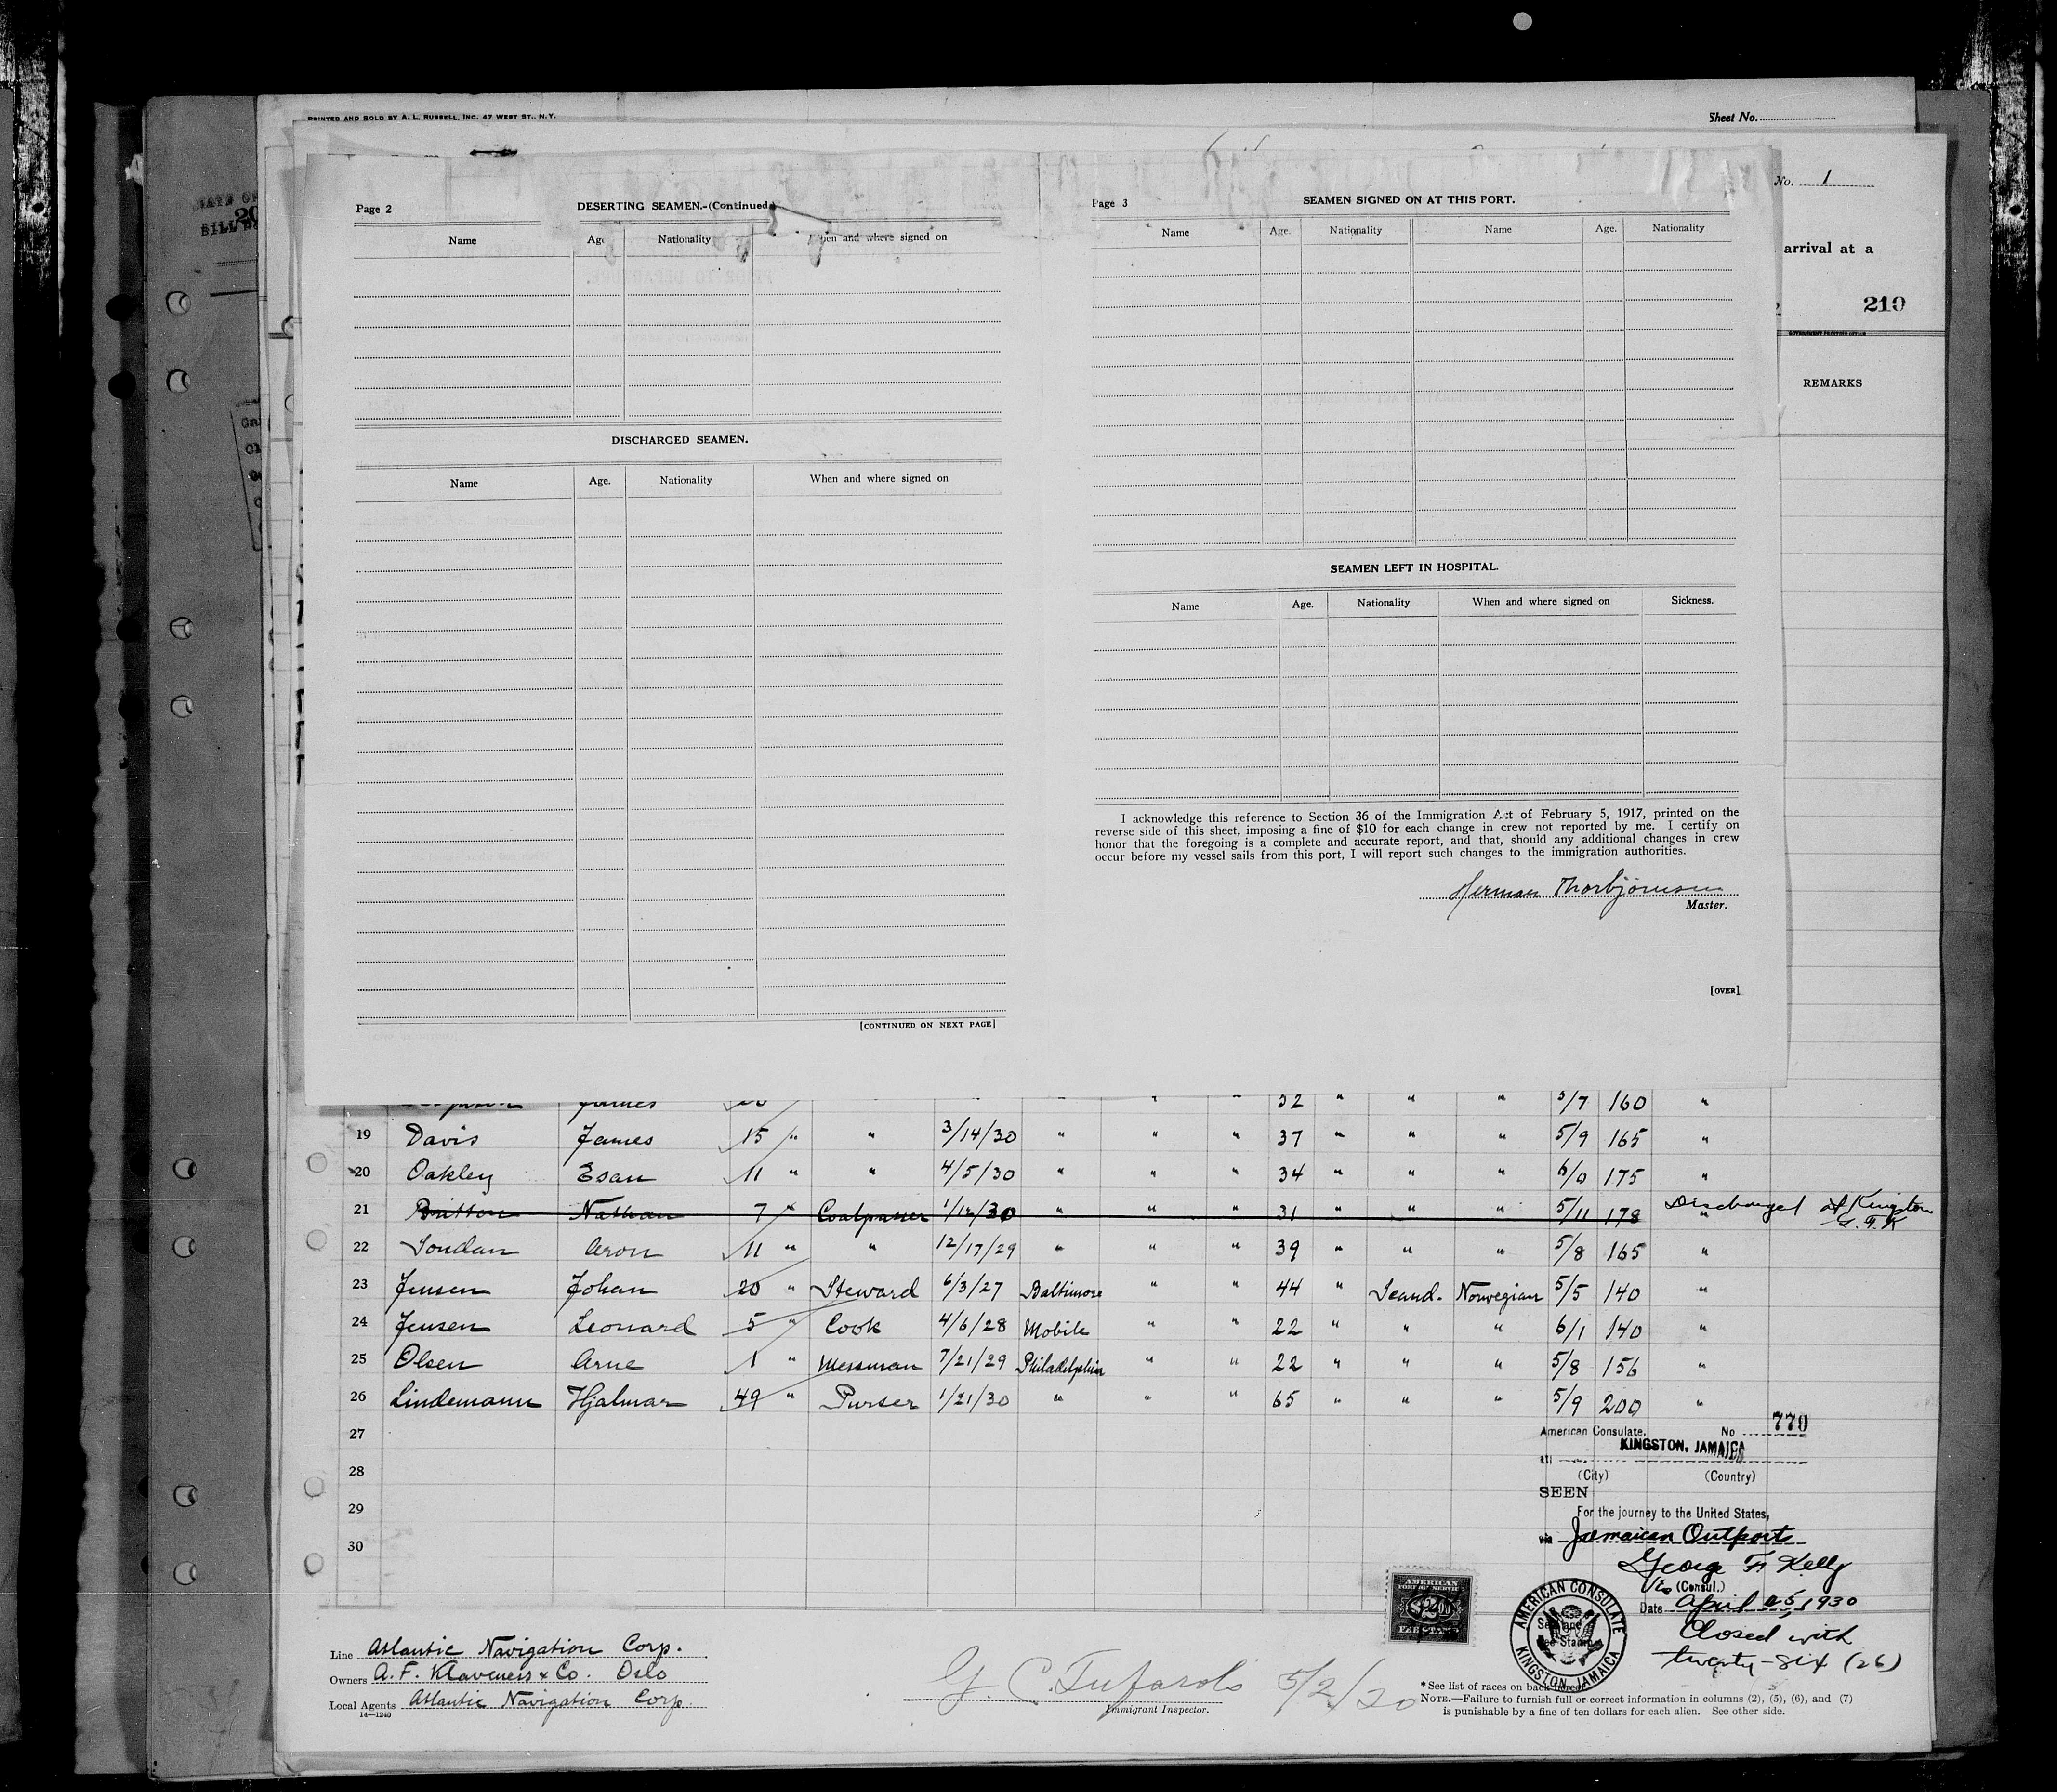 PRINTED AND SOLD BY A. L. RUSSELL, INC. 47 WEST ST., N.Y.
Sheet No.
No. 1
arrival at a
210
REMARKS
Page 2
DESERTING SEAMEN.-(Continued)
Name Age Nationality When and where signed on
DISCHARGED SEAMEN.
Name Age. Nationality When and where signed on
[CONTINUED ON NEXT PAGE]
Page 3
SEAMEN SIGNED ON AT THIS PORT.
Name Age. Nationality Name Age. Nationality
SEAMEN LEFT IN HOSPITAL.
Name Age. Nationality When and where signed on Sickness.
I acknowledge this reference to Section 36 of the Immigration Act of February 5, 1917, printed on the
reverse side of this sheet, imposing a fine of $10 for each change in crew not reported by me. I certify on
honor that the foregoing is a complete and accurate report, and that, should any additional changes in crew
occur before my vessel sails from this port, I will report such changes to the immigration authorities.
Herman Thorbjörnsen
Master.
[OVER]
James " " " 32 " " " 5/7 160 "
19 Davis James 15 " " 3/14/30 " " " 37 " " " 5/9 165 "
20 Oakley Esau 11 " " 4/5/30 " " " 34 " " " 6/0 175 "
21 Britton Nathan 7 " Coalpasser 1/12/30 " " " 31 " " " 5/11 178 " Discharged at Kingston
G.F.K
22 Aron 11 " " 12/17/29 " " " 39 " " " 5/8 165 "
23 Jensen Johan 20 " Steward 6/3/27 Baltimore " " 44 " Scand. Norwegian 5/5 140 "
24 Jensen Leonard 5 " Cook 4/6/28 Mobile " " 22 " " " 6/1 140 "
25 Olsen Arne 1 " Messman 7/21/29 Philadelphia " " 22 " " " 5/8 156 "
26 Lindemann Hjalmar 49 " Purser 1/21/30 " " " 65 " " " 5/9 200 "
27
28
29
30
American Consulate, No 770
KINGSTON, JAMAICA
(City) (Country)
SEEN
For the journey to the United States,
via Jamaican Outports
George F. Kelly
Vice (Consul.)
Date April 25, 1930
Closed with
twenty-six (26)
AMERICAN
FEE STAMP
AMERICAN CONSULATE
KINGSTON, JAMAICA
Line Atlantic Navigation Corp.
Owners A. F. Klaveness & Co. Oslo
Local Agents Atlantic Navigation Corp.
14—1240
Immigrant Inspector.
* See list of races on back hereof.
NOTE.—Failure to furnish full or correct information in columns (2), (5), (6), and (7)
is punishable by a fine of ten dollars for each alien. See other side.